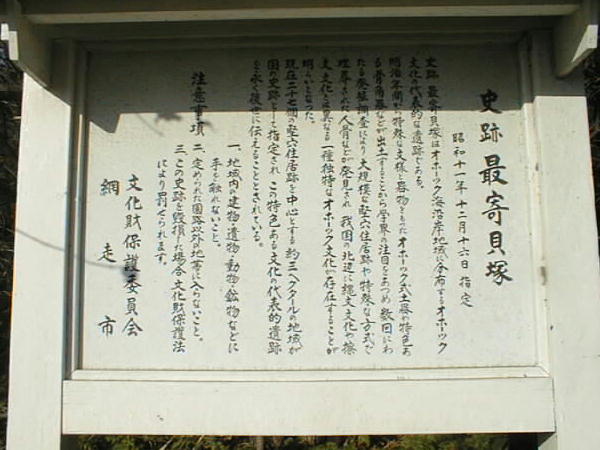 史跡 最寄貝塚
昭和十一年十二月十六日 指定
史跡 最寄貝塚はオホーツク海沿岸地域に分布するオホーツク
文化の代表的な遺跡である。
明治年間から特殊な文様と器物をもったオホーツク式土器や特色あ
る骨角器などが出土することから学界の注目をあつめ 数回にわ
たる発掘調査により 大規模な竪穴住居跡や 特殊な方式で
埋葬された人骨などが発見され 我国の北辺に縄文文化や擦
文文化とは異なる一種独特なオホーツク文化が存在することが
明らかとなった。
現在二七個の竪穴住居跡を中心とする約三ヘクタールの地域が
国の史跡として指定され この特色ある文化の代表的遺跡
を永く後世に伝えることとされている。
注意事項
一、地域内の建物 遺物 動物 鉱物などに
手を触れないこと。
二、定められた園路以外地帯に入らないこと。
三、この史跡を毀損した場合 文化財保護法
により罰せられます。
文化財保護委員会
網走市